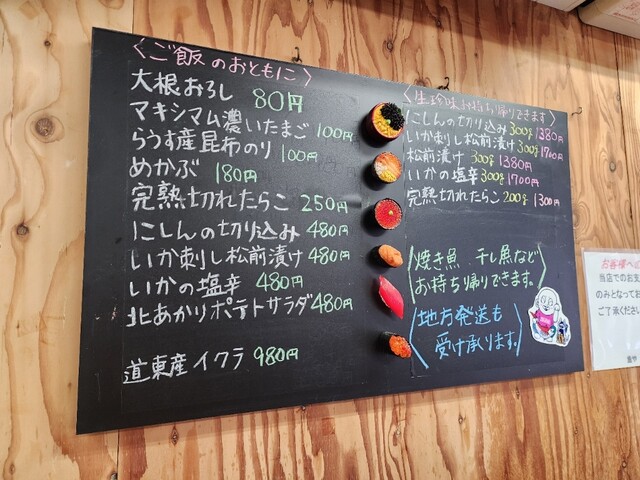 〈ご飯のおともに〉
大根おろし 80円
マキシマム濃いたまご 100円
らうす産昆布のり 100円
めかぶ 180円
完熟切れたらこ 250円
にしんの切り込み 480円
いか刺し松前漬け 480円
いかの塩辛 480円
北あかりポテトサラダ 480円
道東産イクラ 980円
〈生珍味お持ち帰りできます〉
にしんの切り込み 300g 1380円
いか刺し松前漬け 300g 1700円
松前漬け 300g 1380円
いかの塩辛 300g 1700円
完熟切れたらこ 200g 1300円
焼き魚 干し魚など
お持ち帰りできます。
地方発送も
受け承ります。
お客様への
当店でのお支
のみとなってお
ご了承ください